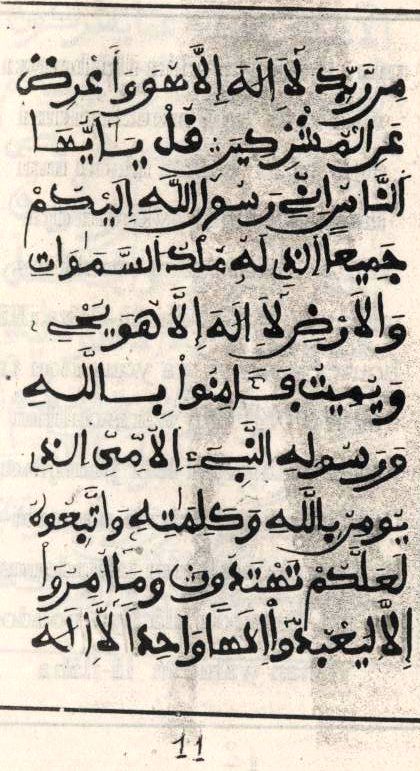 مِن رَّبِّكَ لَآ إِلَهَ إِلَّا هُوَ وَأَعْرِضْ
عَنِ الْمُشْرِكِينَ قُلْ يَـأَيُّهَا
النَّاسُ إِنِّي رَسُولُ اللَّهِ إِلَيْكُمْ
جَمِيعًا الَّذِي لَهُ مُلْكُ السَّمَوَاتِ
وَالْأَرْضِ لَآ إِلَهَ إِلَّا هُوَ يُحْيِي
وَيُمِيتُ فَـَامِنُوا بِاللَّهِ
وَرَسُولِهِ النَّبِيءِ الْأُمِّيِّ الَّذِي
يُومِنُ بِاللَّهِ وَكَلِمَتِهِ وَاتَّبِعُوهُ
لَعَلَّكُمْ تَهْتَدُونَ وَمَا أُمِرُوا
إِلَّا لِيَعْبُدُوا إِلَهًا وَاحِدًا لَّآ إِلَهَ
11